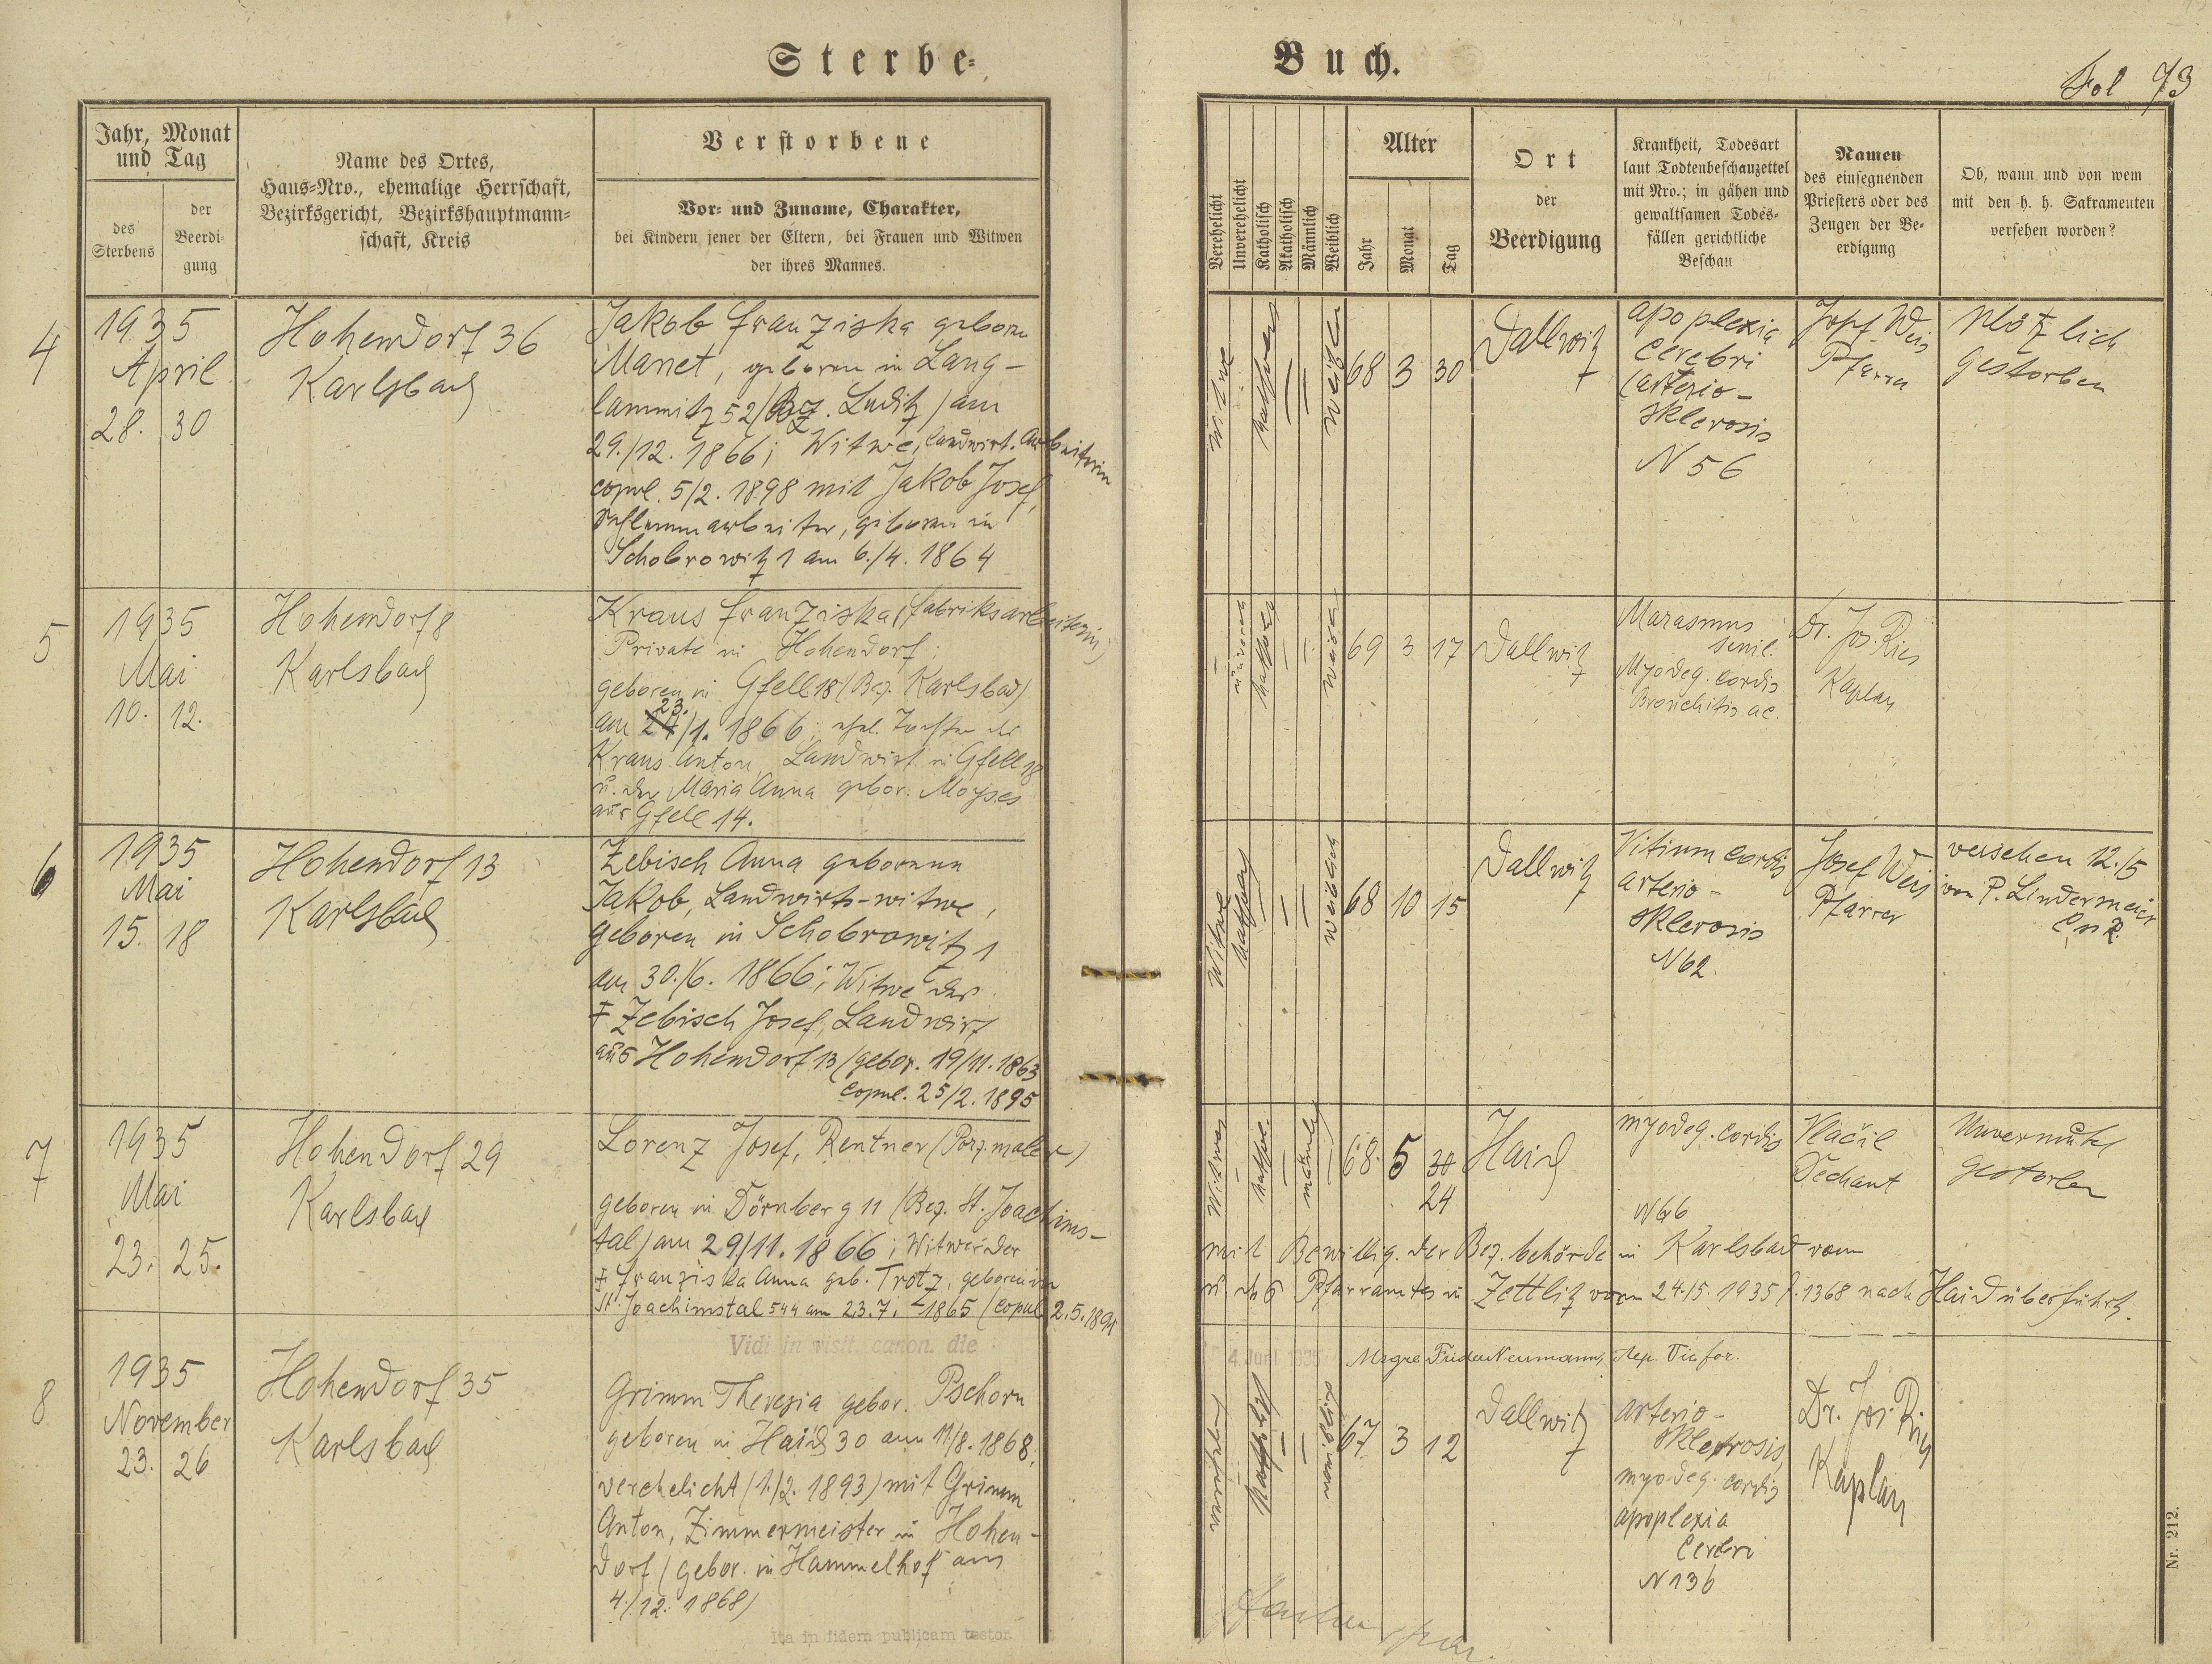 Sterbe-
Buch.
Fol 73
Jahr, Monat
und Tag
des
Sterbens
der
Beerdi-
gung
Name des Ortes,
Haus-Nro., ehemalige Herrschaft,
Bezirksgericht, Bezirkshauptmann-
schaft, Kreis
Verstorbene
Vor- und Zuname, Charakter,
bei Kindern jener der Eltern, bei Frauen und Witwen
der ihres Mannes.
Verehelicht
Unverehelicht
Katholisch
Akatholisch
Männlich
Weiblich
Alter
Jahr
Monat
Tag
Ort
der
Beerdigung
Krankheit, Todesart
laut Todtenbeschauzettel
mit Nro.; in gähen und
gewaltsamen Todes-
fällen gerichtliche
Beschau
Namen
des einsegnenden
Priesters oder des
Zeugen der Be-
erdigung
Ob, wann und von wem
mit den h. h. Sakramenten
versehen worden?
4
1935
April
28. 30
Hohendorf 36
Karlsbad
Jakob Franziska geboren
Manet, geboren in Lang-
lammitz 52 (Bez. Luditz) am
29./12. 1866; Witwe, landwirt. Arbeiterin
copul. 5/2. 1898 mit Jakob Josef,
Schlemmarbeiter, geboren in
Schobrowitz 1 am 6./4. 1864
Witwe
weiblich
68 3 30
Dallwitz
apoplexia
cerebri
(arterio-
sklerosis
N 56
Josef Weis
Pfarrer
Plötzlich
gestorben
5
1935
Mai
10. 12.
Hohendorf 8
Karlsbad
Kraus Franziska, (Fabriksarbeiterin)
Private in Hohendorf;
geboren in Gfell 18 (Bez. Karlsbad)
23.
am 24/1. 1866; ehel. Tochter des
Kraus Anton, Landwirt in Gfell 18
u. der Maria Anna gebor. Moyses
aus Gfell 14.
69 3 17
Dallwitz
Marasmus
senil.
Myodeg. cordis
Bronchitis ac.
Dr. Jos. Ries
Kaplan
6
1935
Mai
15. 18
Hohendorf 13
Karlsbad
Zebisch Anna geborene
Jakob, Landwirts-witwe,
geboren in Schobrowitz 1
am 30./6. 1866; Witwe des
† Zebisch Josef, Landwirt
aus Hohendorf 13 (gebor. 19/11. 1863
copul. 25/2. 1895
Witwe
weiblich
68 10 15
Dallwitz
Vitium cordis
arterio-
sklerosis
N 62
Josef Weis
Pfarrer
versehen 12./5
von P. Lindermeier
7
1935
Mai
23. 25.
Hohendorf 29
Karlsbad
Lorenz Josef, Rentner (Porz.maler)
geboren in Dörnberg 11 (Bez. St. Joachims-
tal) am 29/11. 1866; Witwer der
† Franziska Anna geb. Trotz, geboren in
St. Joachimstal 544 am 23.7. 1865 (copul. 2.5.1891
Witwer
männl.
68. 5 30
24
Haid
myodeg. cordis
N 66
Vlačil
Dechant
Unvermutet
gestorben
mit Bewillig. der Bez. behörde in Karlsbad vom
u. des Pfarramtes in Zettlitz vom 24./5. 1935 Z. 1368 nach Haid überführt.
Vidi in visit. canon. die
4. Juni 1935
8
1935
November
23. 26
Hohendorf 35
Karlsbad
Grimm Theresia gebor. Pschorn
geboren in Haid 30 am 11./8. 1868,
verehelicht (1./2. 1893) mit Grimm
Anton, Zimmermeister in Hohen-
dorf (gebor. in Hammelhof am
4./12. 1868)
67 3 12
Dallwitz
arterio-
sklerosis,
myodeg. cordis
apoplexia
cerebri
N 136
Dr. Jos. Ries
Kaplan
Ita in fidem publicam testor.
Nr. 212.